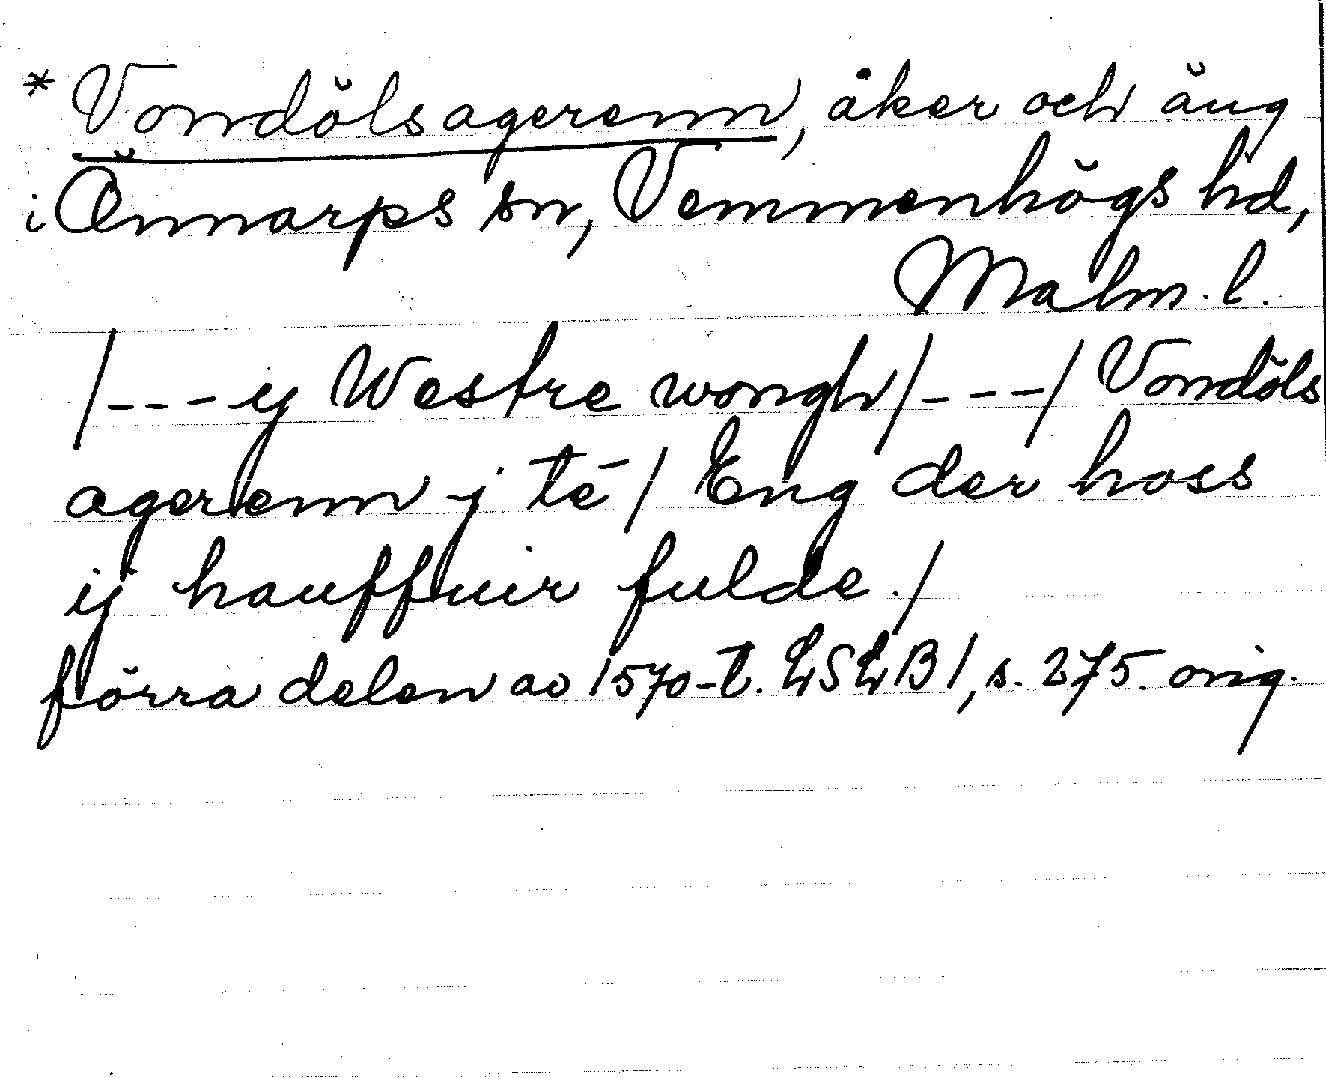 * Vondölsagerenn, åker och äng
i Önnarps sn, Vemmenhögs hd,
Malm. l.
/---ij Westre wongh/---/ Vondöls
agerenn j të/ Eng der hoss
ij hauffuir fulde./
förra delen av 1570-t. LSLB1, s. 275. orig.